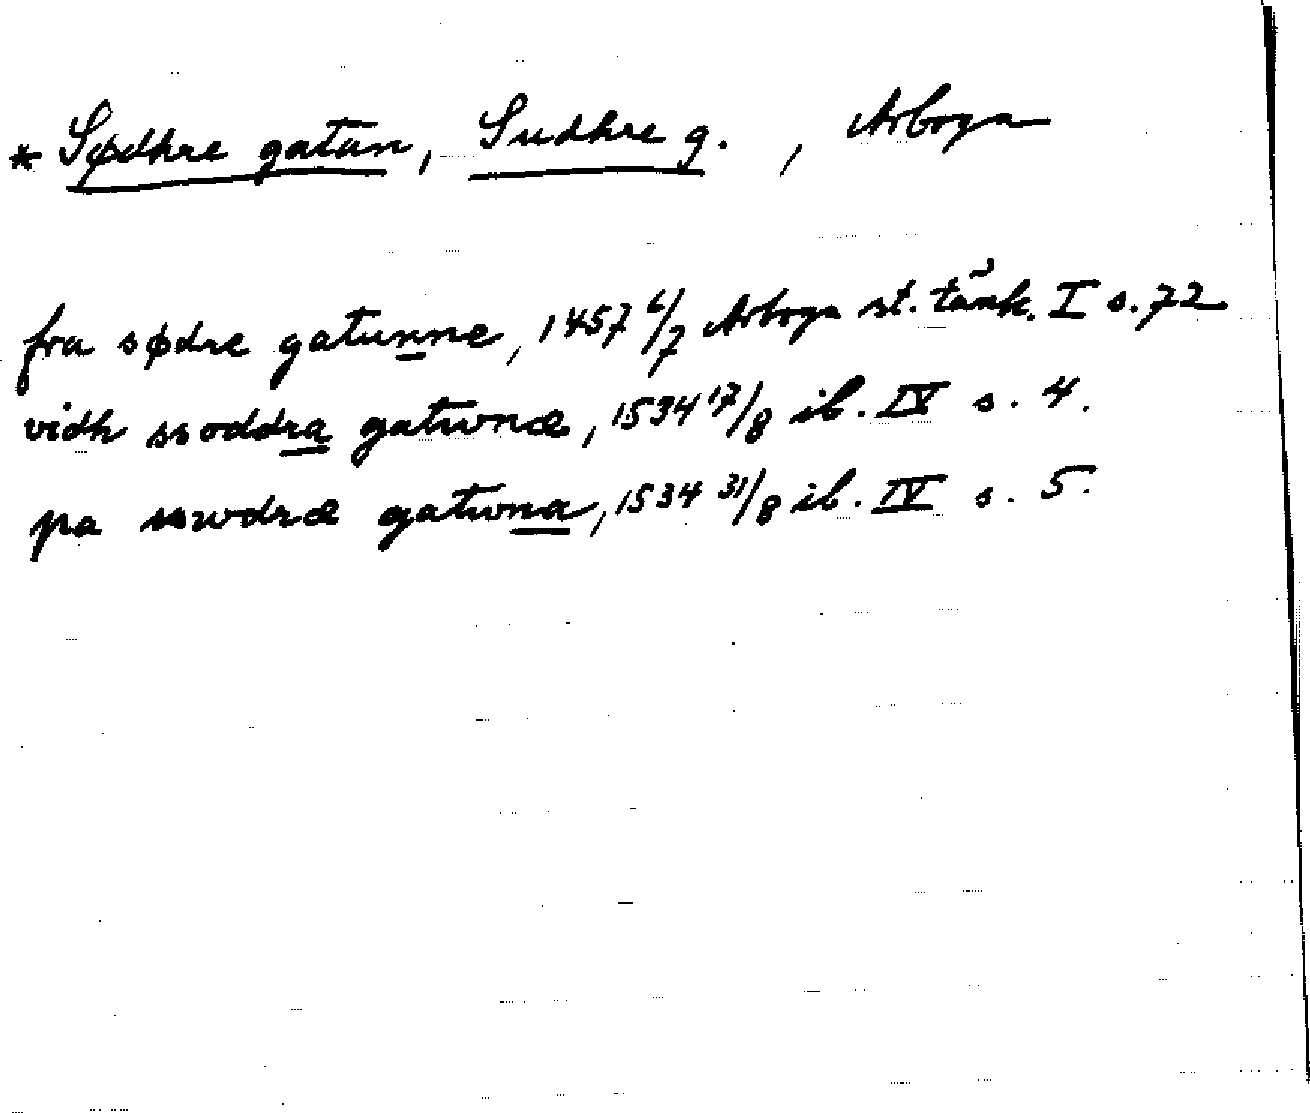 * Sødhre gatan, Sudhre g. , Arboga
fra sødre gatunne, 1457 6/7 Arboga st. tänk. I s. 72
vidh ssoddra gatwnæ, 1534 17/8 ib. IV s. 4.
pa sswdræ gatwna, 1534 31/8 ib. IV s. 5.